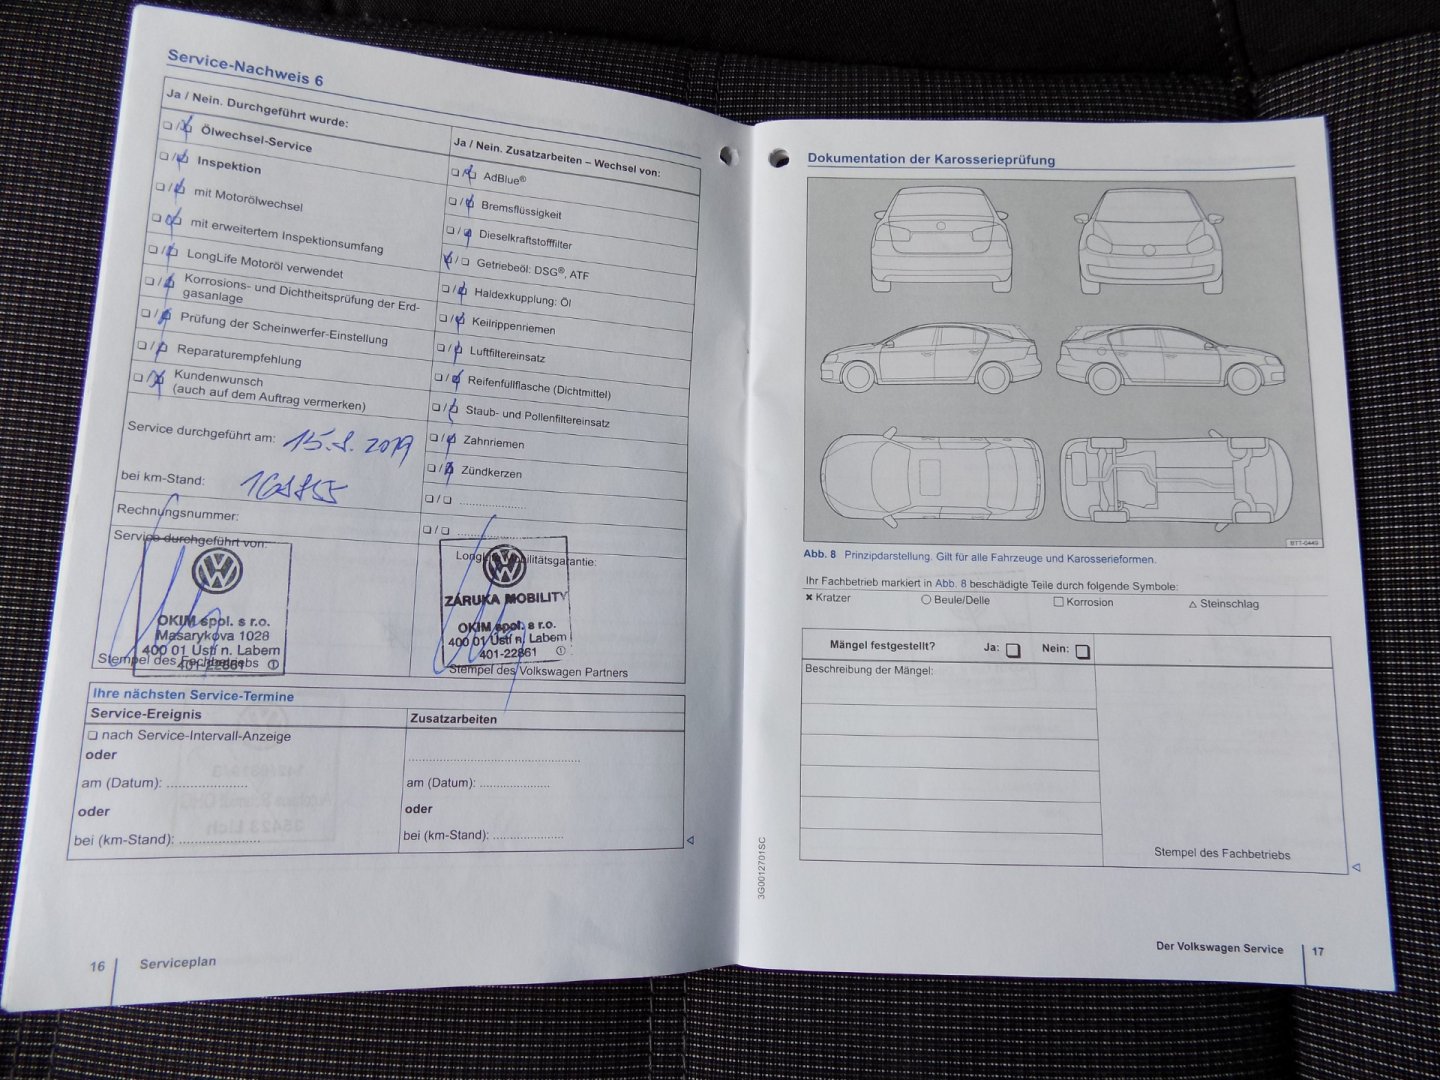 Service-Nachweis 6
Ja / Nein. Durchgeführt wurde:
Ölwechsel-Service
Inspektion
mit Motorölwechsel
mit erweitertem Inspektionsumfang
LongLife Motoröl verwendet
Korrosions- und Dichtheitsprüfung der Erd-
gasanlage
Prüfung der Scheinwerfer-Einstellung
Reparaturempfehlung
Kundenwunsch
(auch auf dem Auftrag vermerken)
Service durchgeführt am: 15.8.2019
bei km-Stand:
Rechnungsnummer:
Service durchgeführt von:
OKIM spol. s r.o.
Masarykova 1028
400 01 Ústí n. Labem
401-22861 ①
Stempel des Fachbetriebs
Ja / Nein. Zusatzarbeiten – Wechsel von:
AdBlue®
Bremsflüssigkeit
Dieselkraftstofffilter
Getriebeöl: DSG®, ATF
Haldexkupplung: Öl
Keilrippenriemen
Luftfiltereinsatz
Reifenfüllflasche (Dichtmittel)
Staub- und Pollenfiltereinsatz
Zahnriemen
Zündkerzen
ZÁRUKA MOBILITY
OKIM spol. s r.o.
400 01 Ústí n. Labem
401-22861 ①
Stempel des Volkswagen Partners
Ihre nächsten Service-Termine
Service-Ereignis
nach Service-Intervall-Anzeige
oder
am (Datum): ....................
oder
bei (km-Stand): ....................
Zusatzarbeiten
am (Datum): ....................
oder
bei (km-Stand): ....................
16 Serviceplan
Dokumentation der Karosserieprüfung
BTT-0449
Abb. 8 Prinzipdarstellung. Gilt für alle Fahrzeuge und Karosserieformen.
Ihr Fachbetrieb markiert in Abb. 8 beschädigte Teile durch folgende Symbole:
✖ Kratzer ○ Beule/Delle □ Korrosion △ Steinschlag
Mängel festgestellt? Ja: Nein:
Beschreibung der Mängel:
Stempel des Fachbetriebs
3G0012701SC
Der Volkswagen Service 17